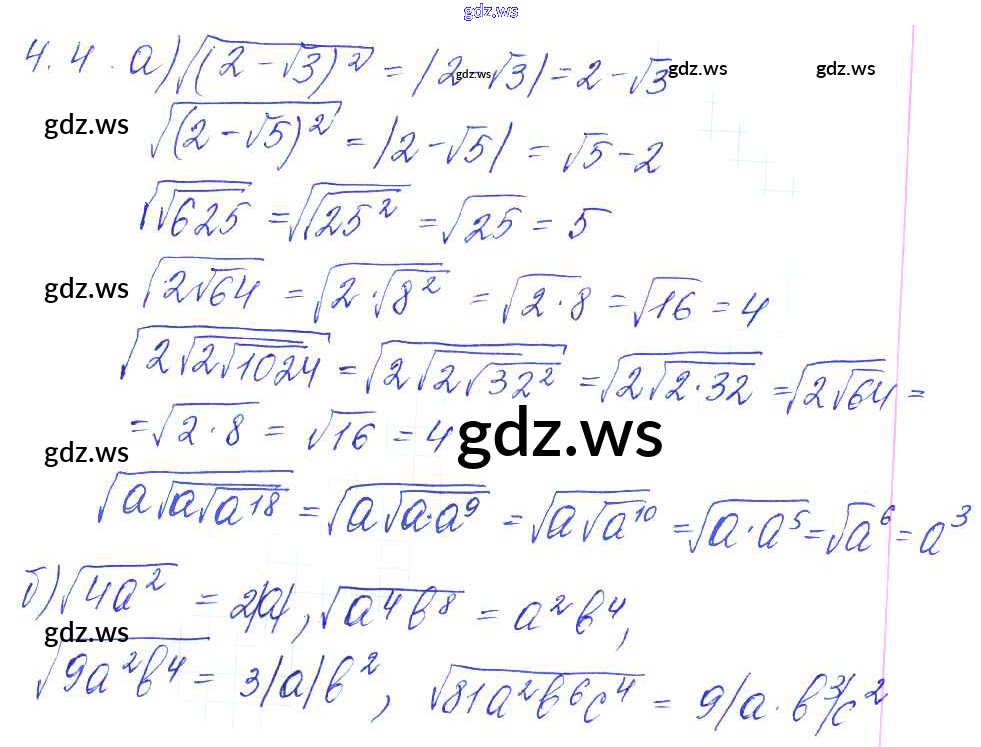 gdz.ws
4.4. а) √((2-√3)²) = |2-√3| = 2-√3
gdz.ws gdz.ws gdz.ws
gdz.ws
√((2-√5)²) = |2-√5| = √5-2
√(√625) = √(√25²) = √25 = 5
gdz.ws
√(2√64) = √(2·√8²) = √(2·8) = √16 = 4
√(2√(2√1024)) = √(2√(2√32²)) = √(2√(2·32)) = √(2√64) =
= √(2·8) = √16 = 4
gdz.ws
gdz.ws
√(a√(a√a¹⁸)) = √(a√(a·a⁹)) = √(a√a¹⁰) = √(a·a⁵) = √a⁶ = a³
б) √(4a²) = 2|a|, √(a⁴b⁸) = a²b⁴,
gdz.ws
√(9a²b⁴) = 3|a|b², √(81a²b⁶c⁴) = 9|a·b³|c²